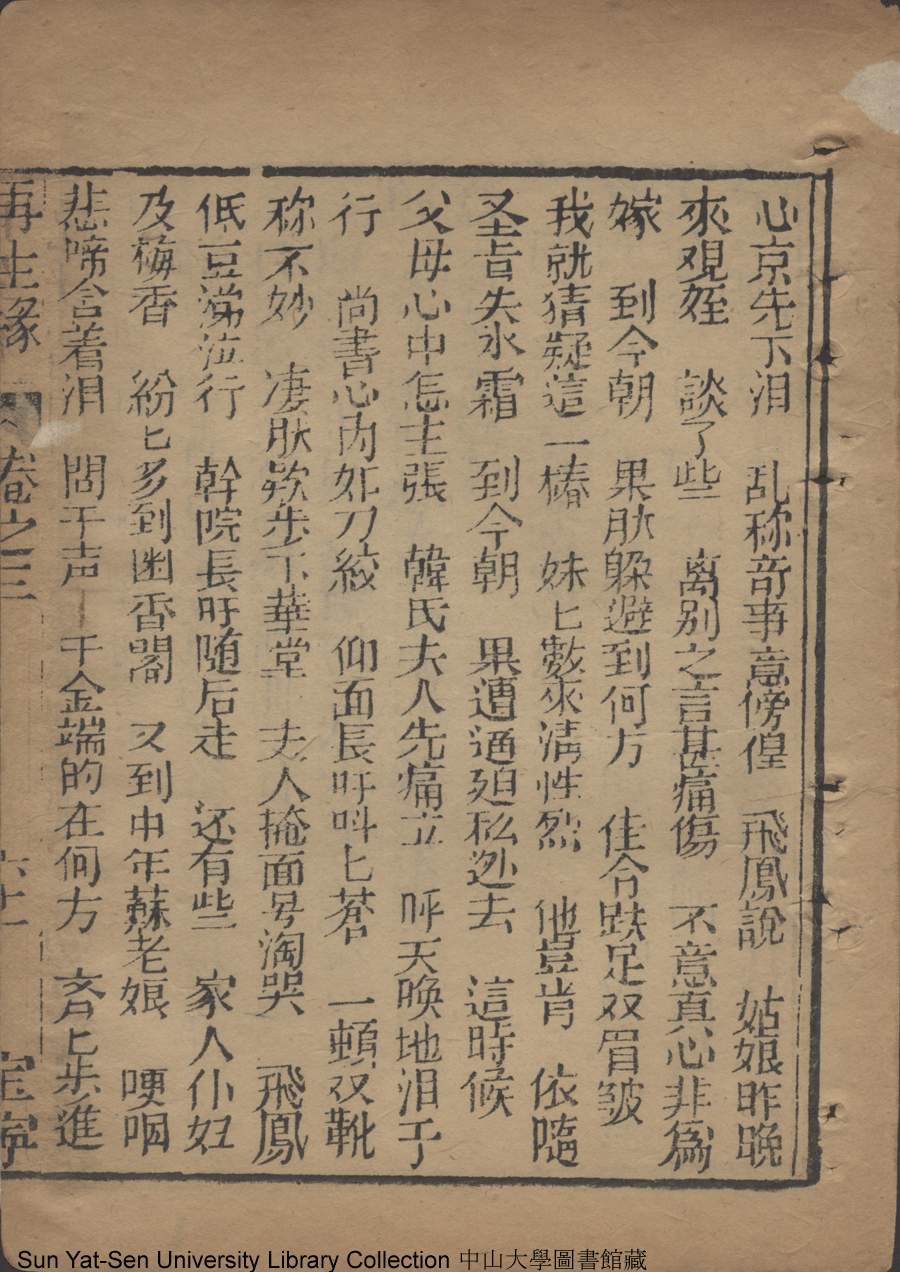 心京先下泪 乱称竒事意傍偟 飛鳳說 姑娘昨晚
來覌姪 談了些 离别之言甚痛傷 不意真心非爲
嫁 到今朝 果肰躱避到何方 佳令跌足双眉皱
我就猜疑這一樁 妹匕數來淸性烈 他豈肯 依隨
圣㫖失氷霜 到今朝 果遭逼廹私迯去 這時候
父母心中怎主張 韓氏夫人先痛立 呼天唤地泪于
行 尚書心内如刀絞 仰面長吁呌匕蒼 一頓双靴
称不妙 凄肰欵步下華堂 夫人掩面号淘哭 飛鳳
低豆涕泣行 幹院長吁随后走 还有些 家人仆妇
及梅香 紛匕多到幽香閣 又到中年蘇老娘 哽咽
悲啼含着泪 問于声 千金端的在何方 斉匕步進
再生緣 卷之三 六十 宝寧
Sun Yat-Sen University Library Collection 中山大學圖書館藏